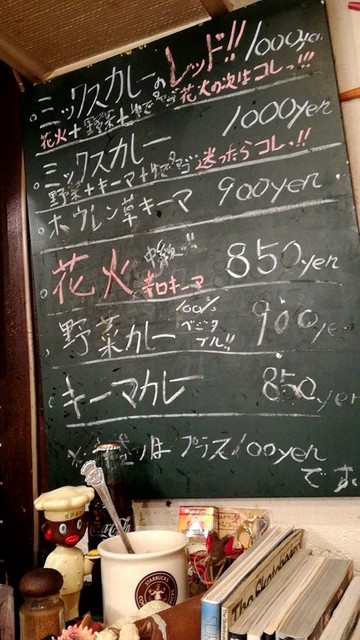 ミックスカレーのレッド!! 1000yen
花火+野菜+ゆでタマゴ 花火の次はコレっ!!!
ミックスカレー 1000yen
野菜+キーマ+ゆでタマゴ 迷ったらコレ!!
ホウレン草キーマ 900yen.
花火 辛口キーマ 850yen
野菜カレー 100% ベジタブル!! 900yen
キーマカレー 850yen
大盛りはプラス100yen
です。
STARBUCKS